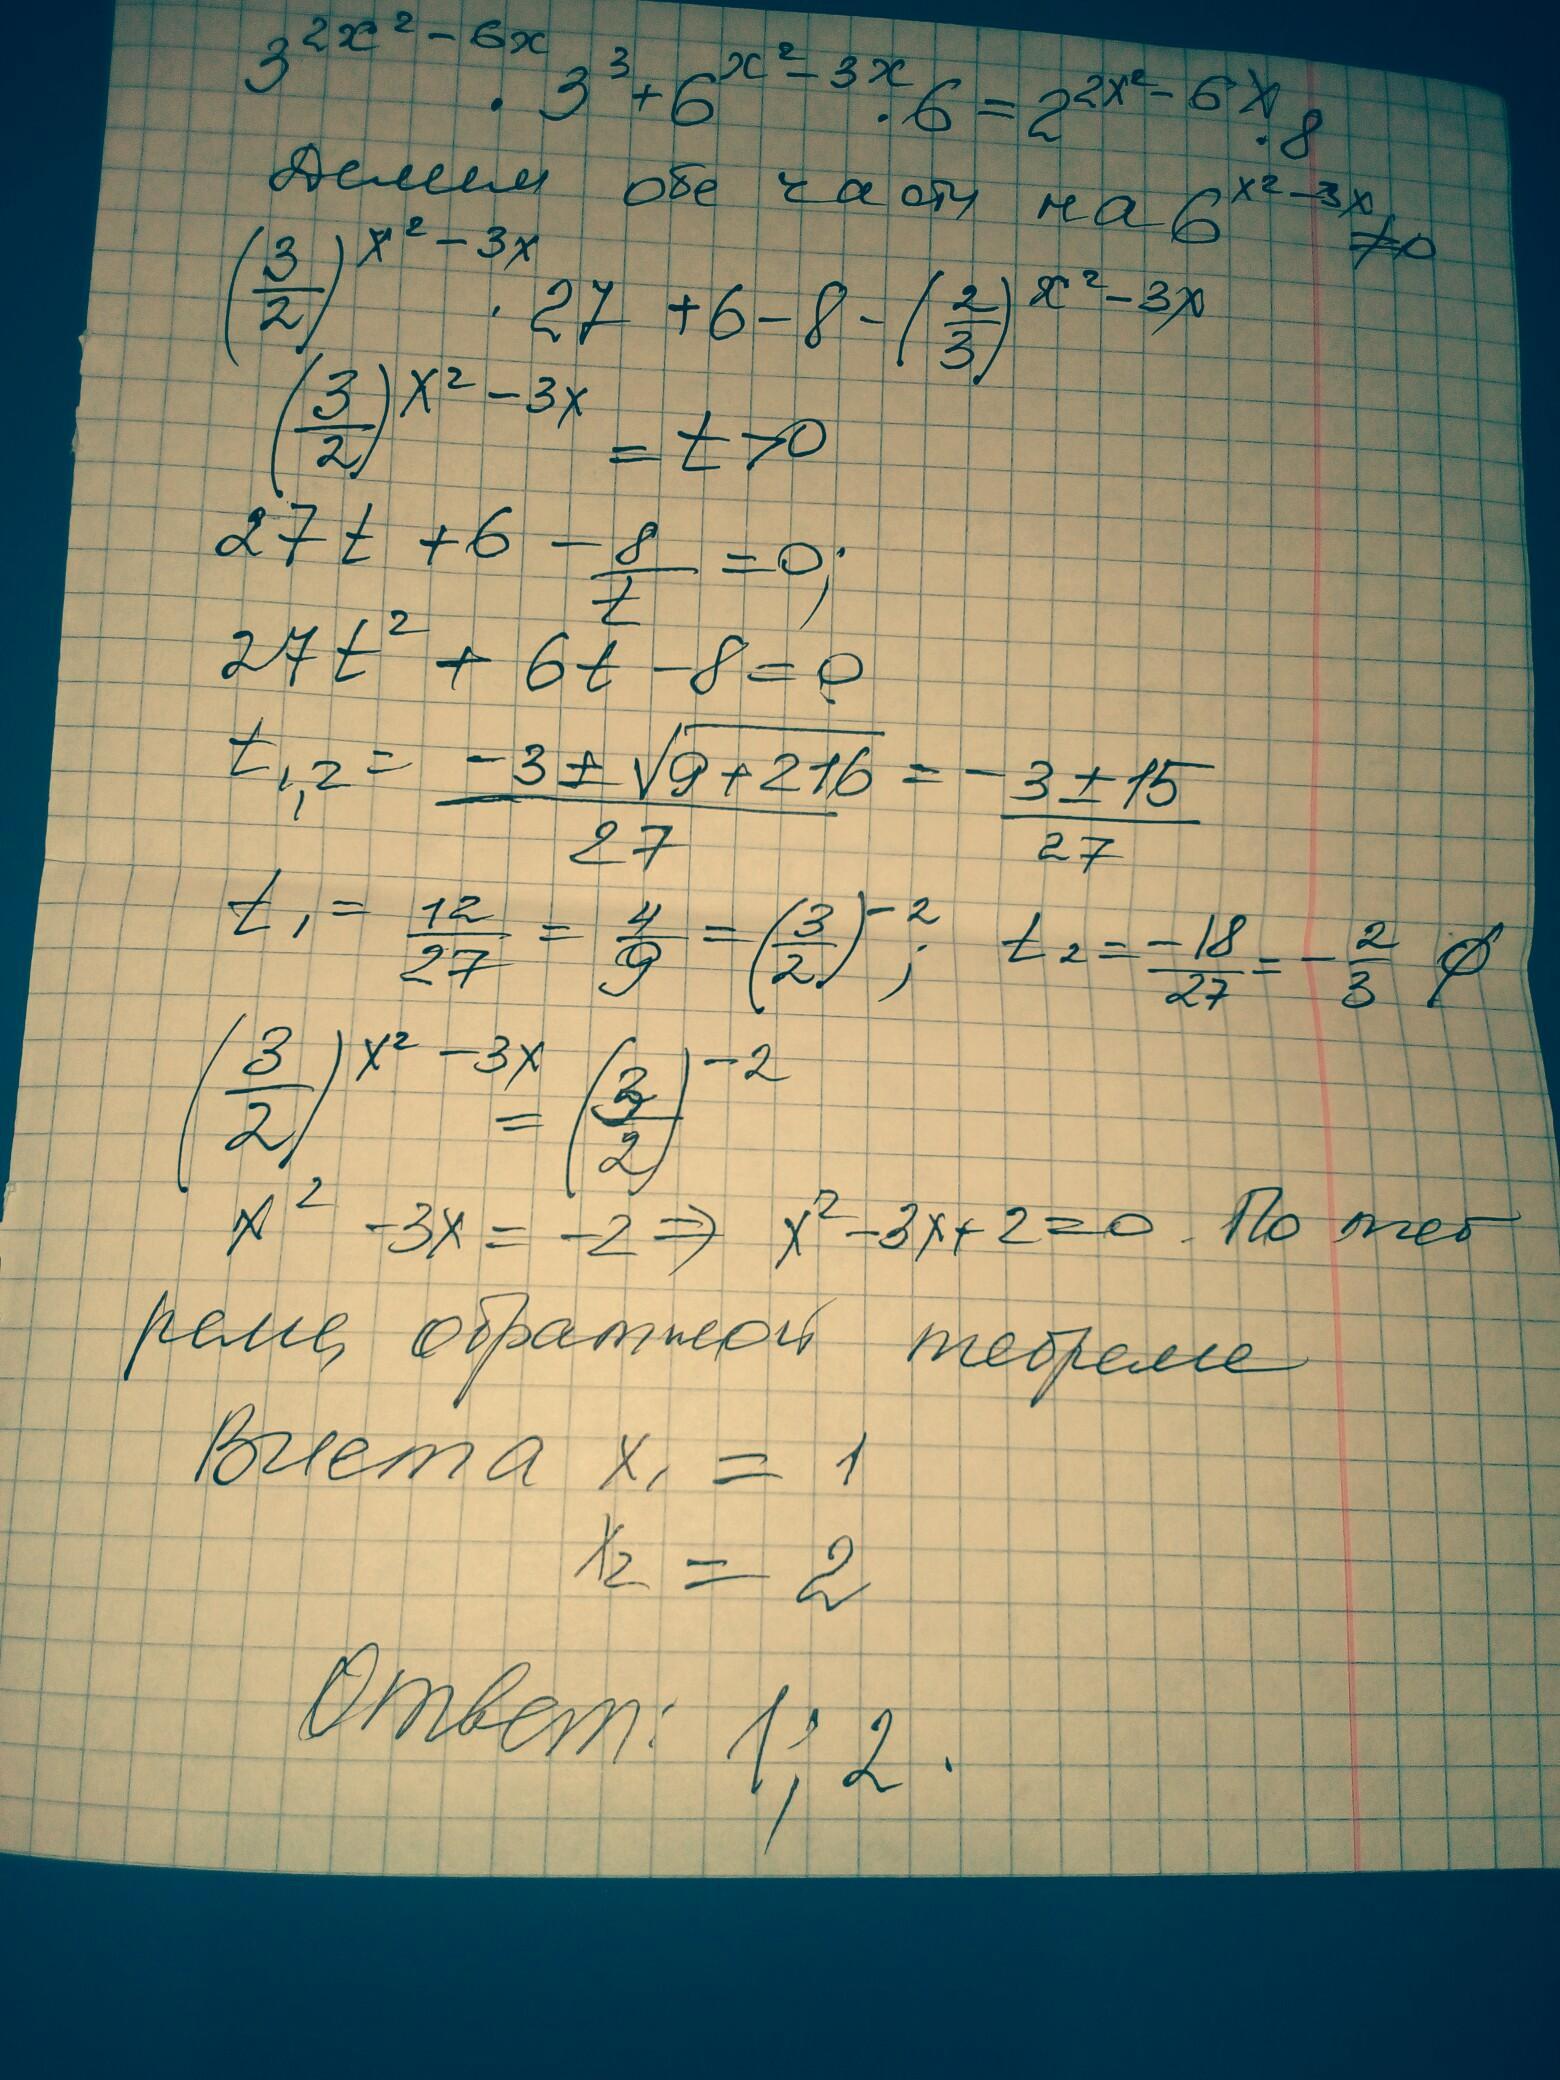 3^{2x^2-6x} · 3^3 + 6^{x^2-3x} · 6 = 2^{2x^2-6x} · 8
Делим обе части на 6^{x^2-3x} ≠ 0
(3/2)^{x^2-3x} · 27 + 6 - 8 - (2/3)^{x^2-3x}
(3/2)^{x^2-3x} = t > 0
27t + 6 - 8/t = 0;
27t^2 + 6t - 8 = 0
t_{1,2} = (-3 ± √(9+216))/27 = (-3 ± 15)/27
t_1 = 12/27 = 4/9 = (3/2)^{-2}; t_2 = -18/27 = -2/3 ∅
(3/2)^{x^2-3x} = (3/2)^{-2}
x^2 - 3x = -2 ⇒ x^2 - 3x + 2 = 0. По тео
реме, обратной теореме
Виета x_1 = 1
x_2 = 2
Ответ: 1; 2.